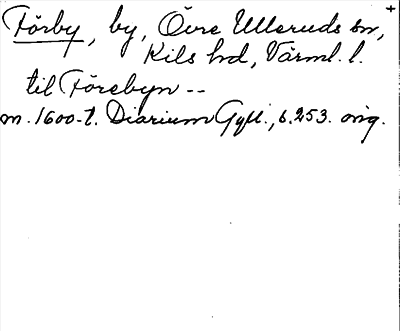 Förby, by, Övre Ulleruds sn,
Kils hd, Värml. l.
til Förebyn --
m. 1600-t. Diarium Gyll., s. 253. orig.